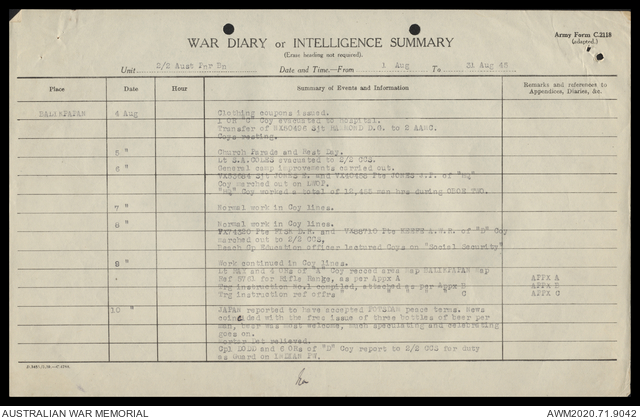 Army Form C.2118
(adapted.)
WAR DIARY or INTELLIGENCE SUMMARY
(Erase heading not required).
Unit 2/2 Aust Pnr Bn Date and Time.—From 1 Aug To 31 Aug 45
Place Date Hour Summary of Events and Information Remarks and references to Appendices, Diaries, &c.
BALIKPAPAN 4 Aug Clothing coupons issued.
1 OR "C" Coy evacuated to hospital.
Transfer of Sjt D.G. to 2 AASC.
Coys meeting.
5 " Church Parade and Rest Day.
Lt S.A. COLES evacuated to 2/2 CCS.
6 " General camp improvements carried out.
Sjt JONES and Pte JONES of "HQ"
Coy marched out on LWOP.
Coy worked a total of man hrs during OBOE TWO.
7 " Normal work in Coy lines.
8 " Normal work in Coy lines.
Pte and Pte of "D" Coy
marched out to 2/2 CCS.
Education officer lectured Coys on "Social Security"
9 " Work continued in Coy lines.
Lt and 4 ORs of "A" Coy recced area BALIKPAPAN
Ref for Rifle Range, as per Appx A APPX A
Trg instruction No.1 compiled, attached as per Appx B APPX B
Trg instruction ref offrs " " " C APPX C
10 " JAPAN reported to have accepted POTSDAM peace terms. News
coincided with the free issue of three bottles of beer per
man, beer was most welcome, much speculating and celebrating
goes on.
Mortar Det relieved.
Cpl DODD and 6 ORs of "D" Coy report to 2/2 CCS for duty
as Guard on INDIAN PW.
AUSTRALIAN WAR MEMORIAL AWM2020.71.9042